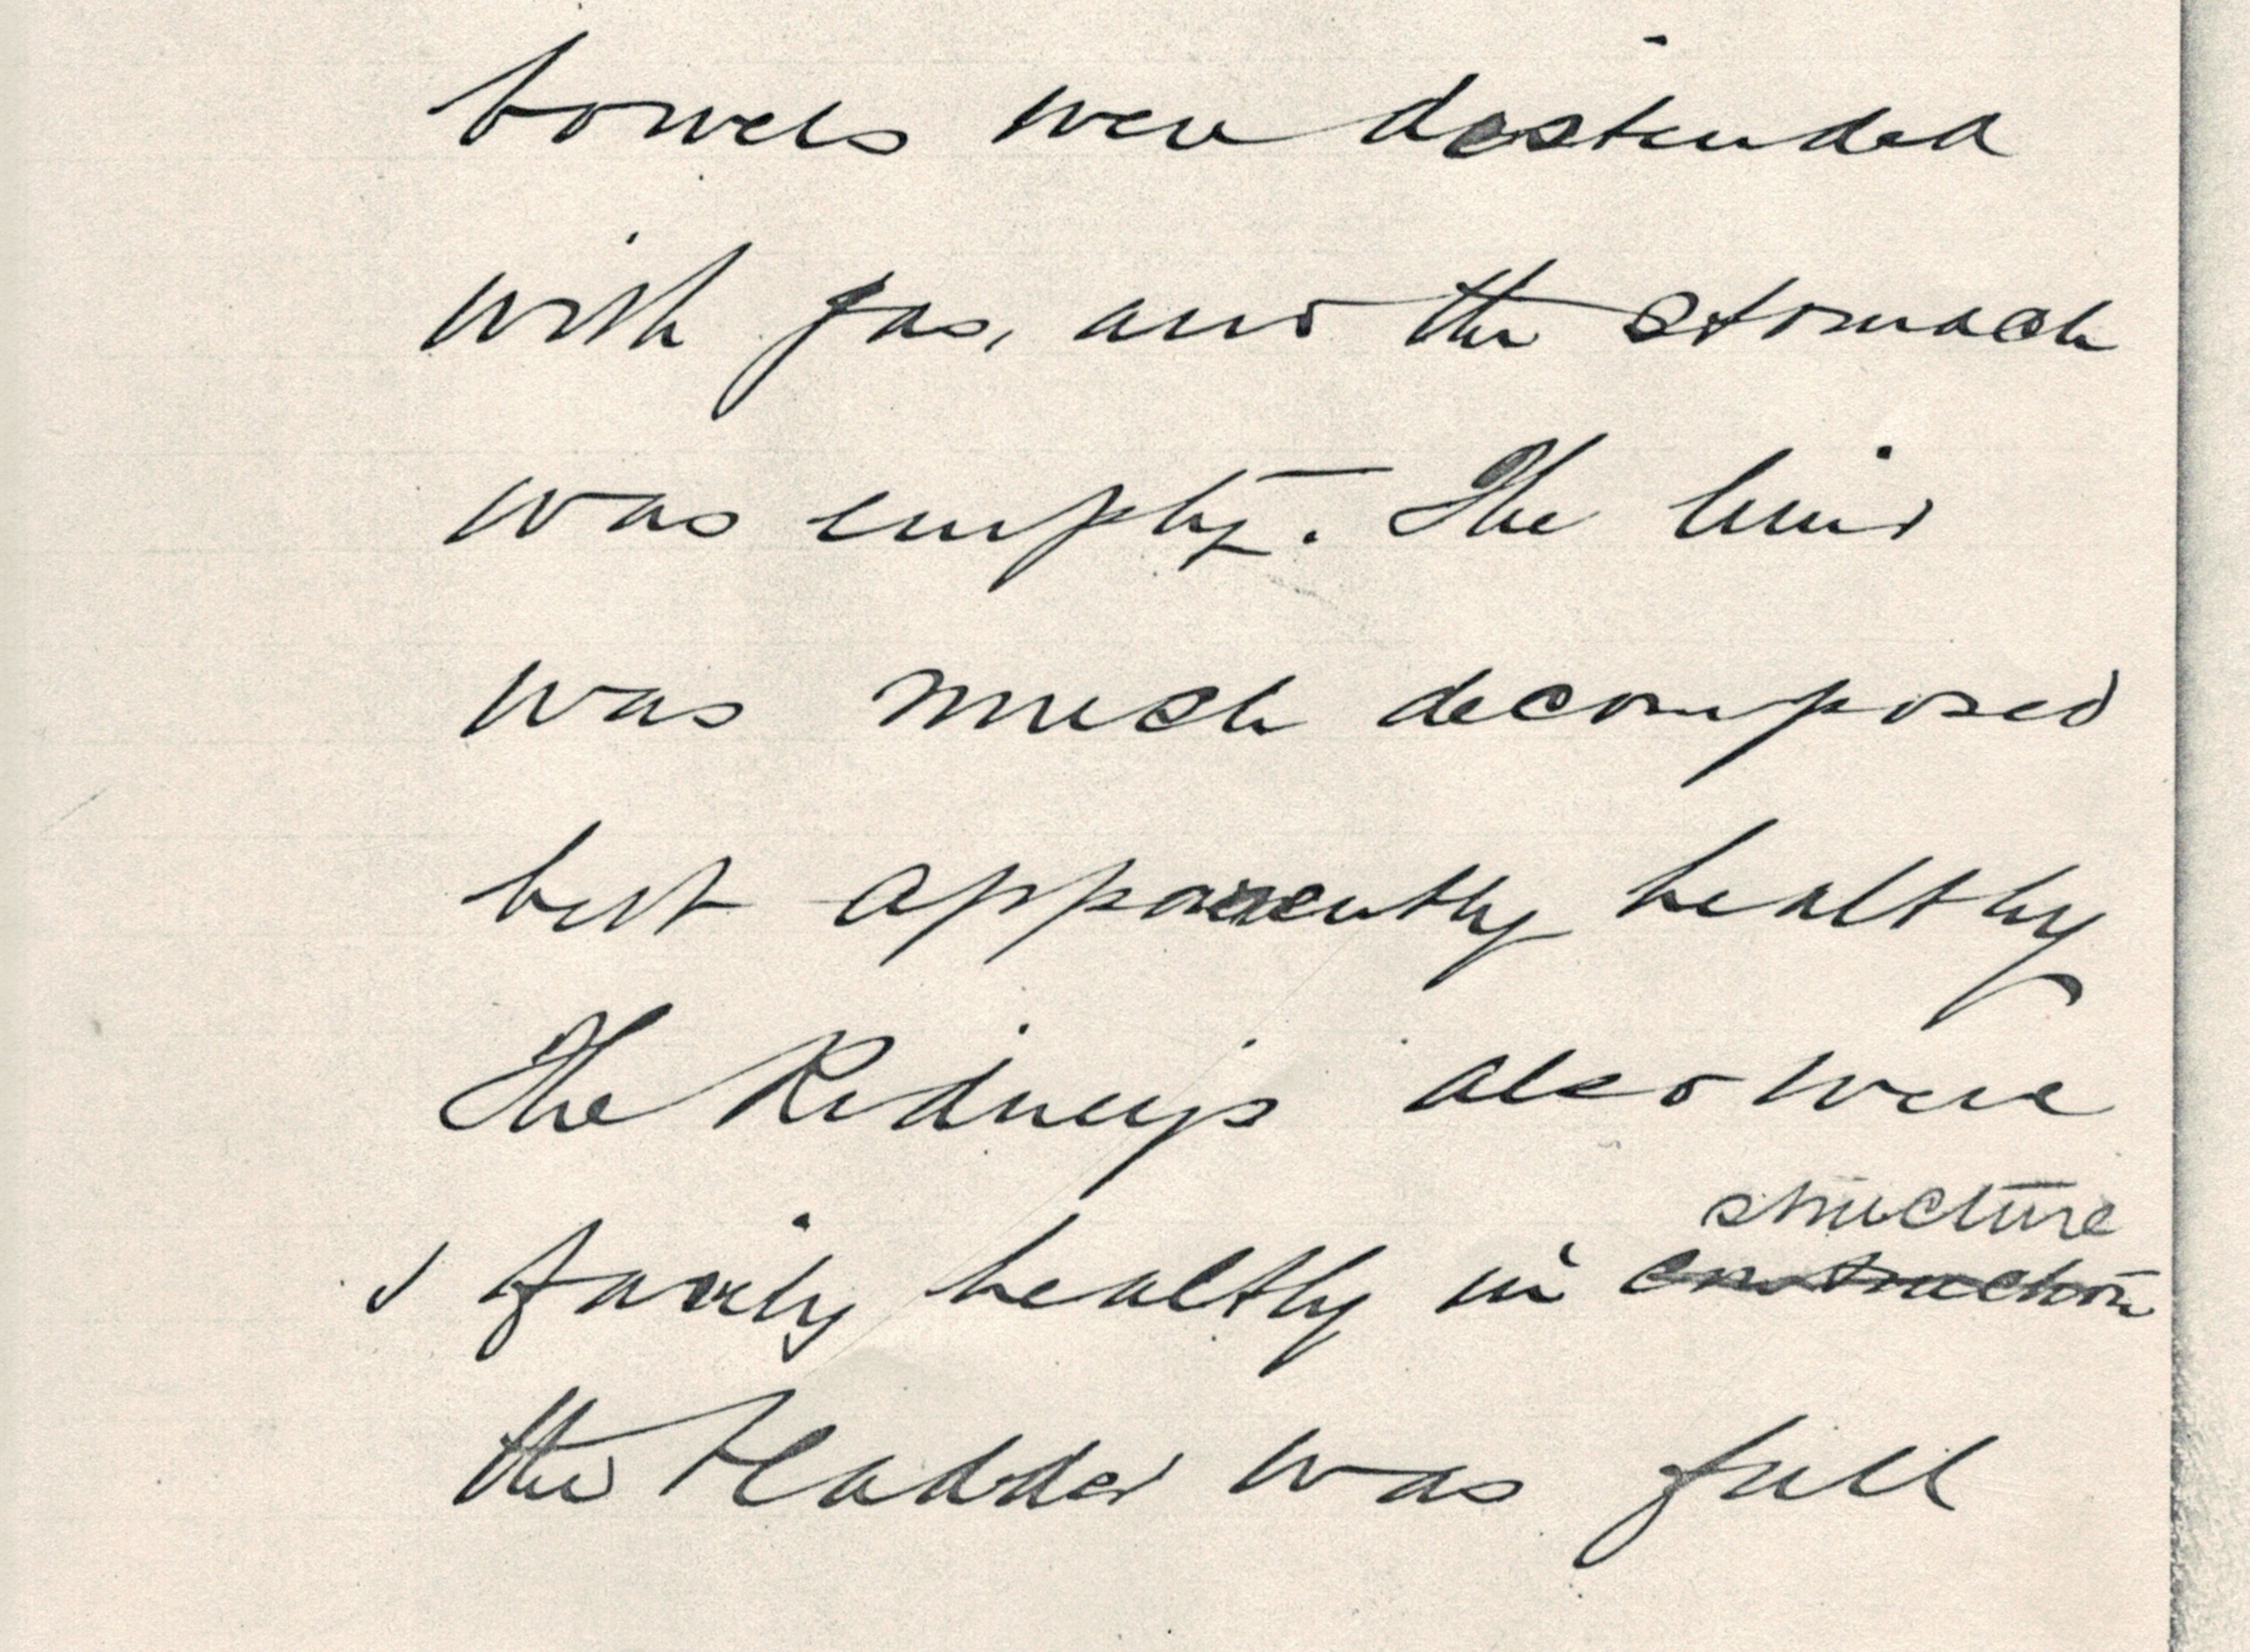 bowels were distended
with gas, and the stomach
was empty. The liver
was much decomposed
but apparently healthy
The Kidneys also were
fairly healthy in structure
construction
the Bladder was full